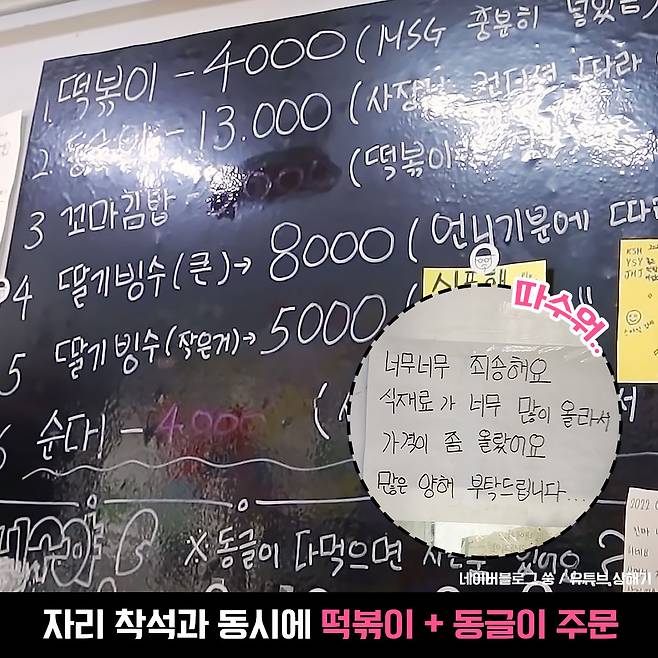 1. 떡볶이 - 4000 (MSG 충분히 넣었음)
2. 13.000 (사장님 컨디션 따라
(떡볶이
3 꼬마김밥 -
4 딸기빙수(큰)→ 8000 (언니기분에 따라
5 딸기빙수(작은거)→ 5000 (
6 순대 - 4.000
※동글이 다먹으면 있어요
KSH
YSY
JHJ
따수워..
너무너무 죄송해요
식재료가 너무 많이 올라서
가격이 좀 올랐어요
많은 양해 부탁드립니다...
2022
네이버블로그 쏭 / 유튜브 상해기
자리 착석과 동시에 떡볶이 + 동글이 주문